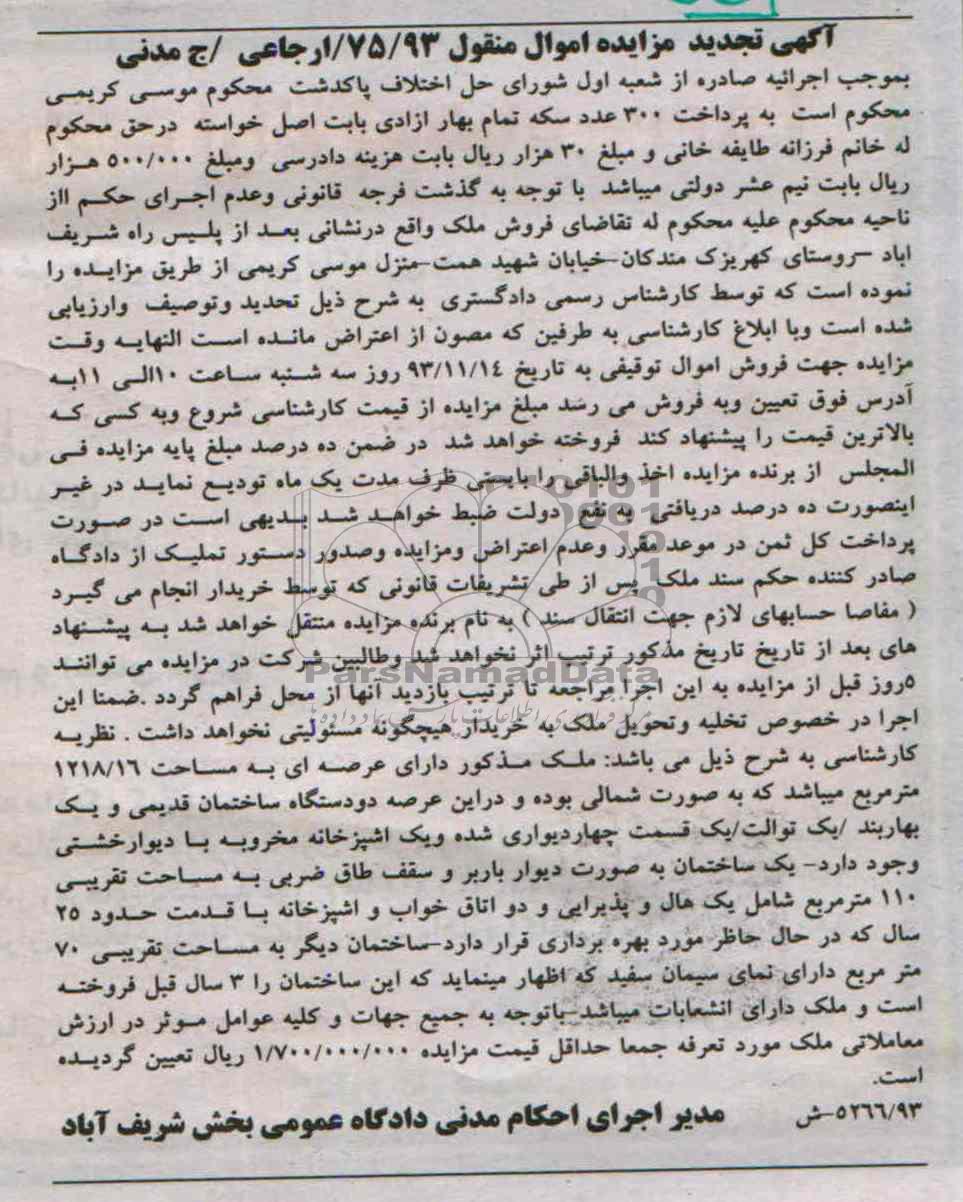 آگهی تجدید مزایده اموال منقول ۷۵/۹۳/ارجاعی /ج مدنی
بموجب اجرائیه صادره از شعبه اول شورای حل اختلاف پاکدشت محکوم موسی کریمی
محکوم است به پرداخت ۳۰۰ عدد سکه تمام بهار ازادی بابت اصل خواسته درحق محکوم
له خانم فرزانه طایفه خانی و مبلغ ۳۰ هزار ریال بابت هزینه دادرسی ومبلغ ۵۰۰/۰۰۰ هزار
ریال بابت نیم عشر دولتی میباشد با توجه به گذشت فرجه قانونی وعدم اجرای حکم ااز
ناحیه محکوم علیه محکوم له تقاضای فروش ملک واقع درنشانی بعد از پلیس راه شریف
اباد –روستای کهریزک مندکان-خیابان شهید همت-منزل موسی کریمی از طریق مزایده را
نموده است که توسط کارشناس رسمی دادگستری به شرح ذیل تحدید وتوصیف وارزیابی
شده است وبا ابلاغ کارشناسی به طرفین که مصون از اعتراض مانده است النهایه وقت
مزایده جهت فروش اموال توقیفی به تاریخ ۹۳/۱۱/۱۴ روز سه شنبه ساعت ۱۰الی ۱۱به
آدرس فوق تعیین وبه فروش می رسد مبلغ مزایده از قیمت کارشناسی شروع وبه کسی که
بالاترین قیمت را پیشنهاد کند فروخته خواهد شد در ضمن ده درصد مبلغ پایه مزایده فی
المجلس از برنده مزایده اخذ والباقی را بایستی ظرف مدت یک ماه تودیع نماید در غیر
اینصورت ده درصد دریافتی به نفع دولت ضبط خواهد شد بدیهی است در صورت
پرداخت کل ثمن در موعد مقرر وعدم اعتراض ومزایده وصدور دستور تملیک از دادگاه
صادر کننده حکم سند ملک پس از طی تشریفات قانونی که توسط خریدار انجام می گیرد
( مفاصا حسابهای لازم جهت انتقال سند ) به نام برنده مزایده منتقل خواهد شد به پیشنهاد
های بعد از تاریخ تاریخ مذکور ترتیب اثر نخواهد شد وطالبین شرکت در مزایده می توانند
۵روز قبل از مزایده به این اجرا مراجعه تا ترتیب بازدید آنها از محل فراهم گردد .ضمنا این
اجرا در خصوص تخلیه وتحویل ملک به خریدار هیچگونه مسئولیتی نخواهد داشت . نظریه
کارشناسی به شرح ذیل می باشد: ملک مذکور دارای عرصه ای به مساحت ۱۲۱۸/۱۶
مترمربع میباشد که به صورت شمالی بوده و دراین عرصه دودستگاه ساختمان قدیمی و یک
بهاربند /یک توالت/یک قسمت چهاردیواری شده ویک اشپزخانه مخروبه با دیوارخشتی
وجود دارد- یک ساختمان به صورت دیوار باربر و سقف طاق ضربی به مساحت تقریبی
۱۱۰ مترمربع شامل یک هال و پذیرایی و دو اتاق خواب و اشپزخانه با قدمت حدود ۲۵
سال که در حال حاظر مورد بهره برداری قرار دارد-ساختمان دیگر به مساحت تقریبی ۷۰
متر مربع دارای نمای سیمان سفید که اظهار مینماید که این ساختمان را ۳ سال قبل فروخته
است و ملک دارای انشعابات میباشد-باتوجه به جمیع جهات و کلیه عوامل موثر در ارزش
معاملاتی ملک مورد تعرفه جمعا حداقل قیمت مزایده ۱/۷۰۰/۰۰۰/۰۰۰ ریال تعیین گردیده
است.
۵۲۶۶/۹۳-ش
مدیر اجرای احکام مدنی دادگاه عمومی بخش شریف آباد
ParsNamadData